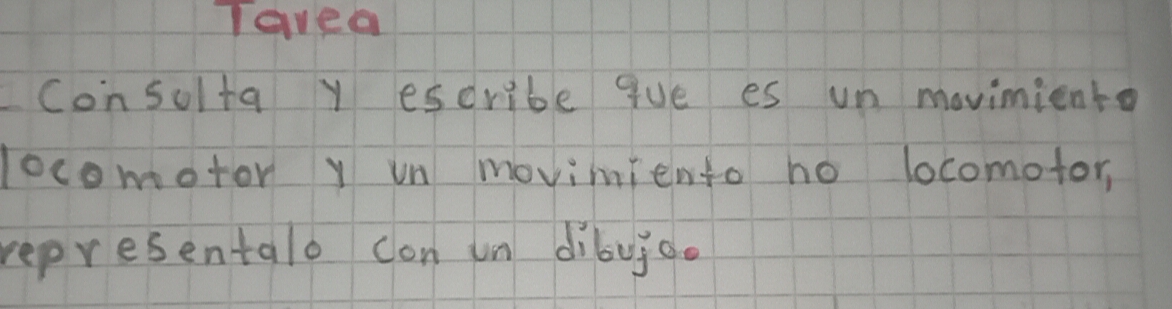 Tarea
- Consulta y escribe que es un movimiento
locomotor y un movimiento no locomotor,
representalo con un dibujo.